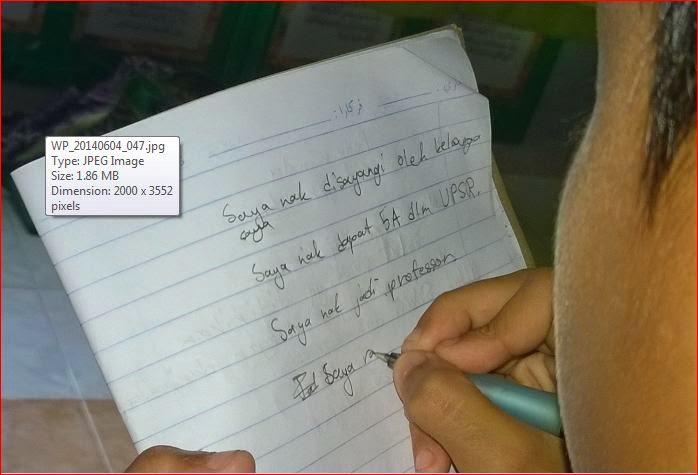 WP_20140604_047.jpg
Type: JPEG Image
Size: 1.86 MB
Dimension: 2000 x 3552
pixels
Saya nak disayangi oleh keluarga
saya
Saya nak dapat 5A dlm UPSR.
Saya nak jadi professor
Saya